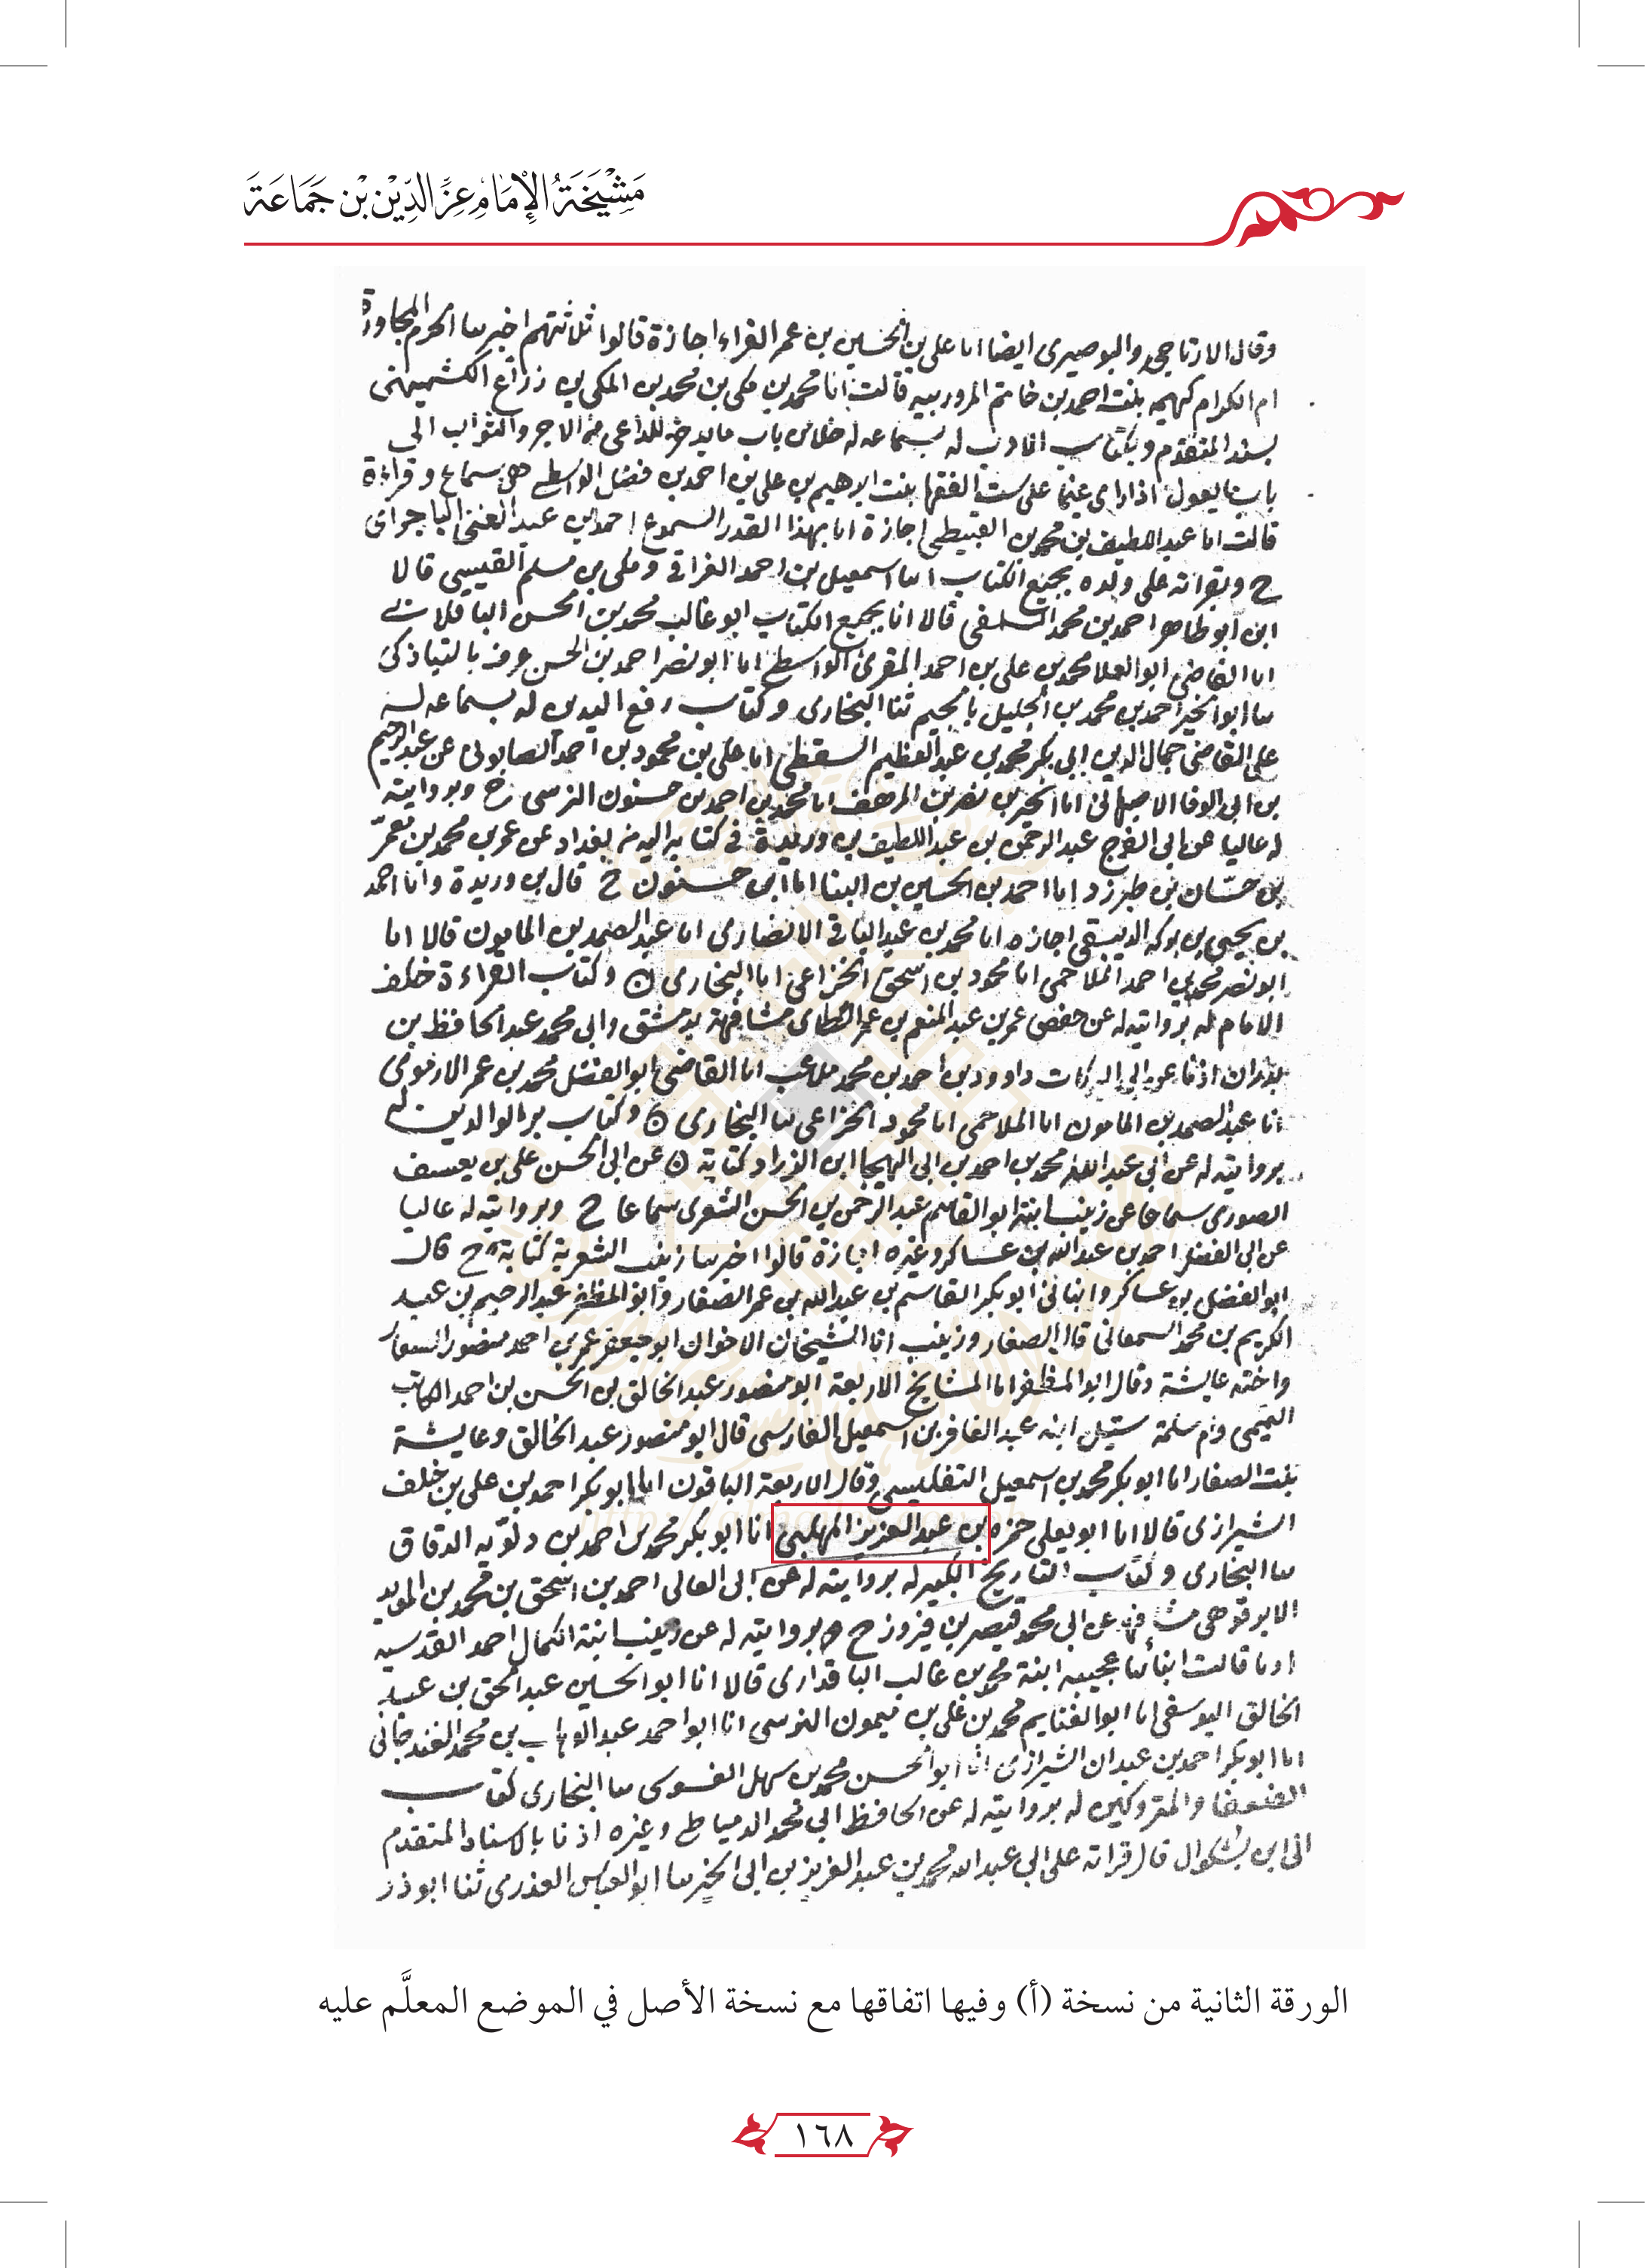 مَشْيَخَةُ الإِمَامِ عِزِّ الدِّيْنِ بْنِ جَمَاعَةَ
وقال الارتاحى والبوصيرى ايضا انا على بن الحسين بن عمر الفراء اجازة قالوا ثلاثتهم اخبرتنا الحرم المجاورة
ام الكرام كريمه بنت احمد بن حاتم المروزيه قالت انا محمد بن مكى بن محمد بن المكى بن زراع الكشميهنى
بسند المتقدم وبكتاب الادب له بسماعه له خلا من باب ما يدخر للداعى من الاجر والثواب الى
باب ما يقول اذا راى غيما على ست الفقها بنت ابرهيم بن على بن احمد بن فضل الواسطى هى سماع وقراءة
قالت انا عبد اللطيف بن محمد بن القبيطى اجازة انا بهذا القدر المسموع احمد بن عبد الغنى الباجراى
ح وبقراته على ولده بجميع الكتاب انا اسمعيل بن احمد العراقى ومكى بن مسلم القيسى قالا
ابن ابو طاهر احمد بن محمد السلفى قالا انا بجميع الكتاب ابو غالب محمد بن الحسن الباقلانى
انا القاضى ابو العلا محمد بن على بن احمد المقرى الواسطى انا ابو نصر احمد بن الحسن عرف بالنيازكى
سا ابو الخير احمد بن محمد بن الجليل بالجيم ثنا البخارى وكتاب رفع اليدين له بسماعه له
على القاضى جمال الدين ابى بكر محمد بن عبد العظيم السقطى انا على بن محمود بن احمد الصابونى عن عبد الرحيم
بن ابى الوفا الاصبهانى انا محمد بن احمد بن حسنون النرسى ح وبروايته
له عاليا عن ابى الفرج عبد الرحمن بن عبد اللطيف بن وريدة فى كتابه اليه من بغداد عن عمر بن محمد بن معمر
بن حسان بن طبرزد انا احمد بن الحسين بن البنا انا ابن حسنون ح قال بن وريدة وانا احمد
بن يحيى بن بركه الدبيقى اجازه انا محمد بن عبد الباقى الانصارى انا عبد الصمد بن المامون قالا انا
ابو نصر محمد بن احمد الملاحمى انا محمود بن اسحق الخزاعى انا البخارى ن وكتاب القراءة خلف
الامام له بروايته له عن حفص عمر بن عبد المنعم بن عمر الطاى مشافهة بدمشق وابى محمد عبد الحافظ بن
بدران اذنا عن ابى البركات داوود بن احمد بن محمد ملاعب انا القاضى ابو الفضل محمد بن عمر الارموى
انا عبد الصمد بن المامون انا الملاحمى انا محمود الخزاعى سا البخارى ن وكتاب بر الوالدين له
بروايته له عن ابى عبد الله محمد بن احمد بن ابى الهيجا ابن الزراد كتابة ن عن ابى الحسن على بن يوسف
الصورى سماعا عن زينب ابنة ابو القاسم عبد الرحمن بن الحسن الشعرى سماعا ح وبروايته له عاليا
عن ابى الفضل احمد بن عبد الله بن عساكر وغيره اجازة قالوا اخبرتنا زينب الشعرية كتابة ح قال
ابو الفضل بن عساكر وانبانى ابو بكر القاسم بن عبد الله بن عمر الصفار وابو المظفر عبد الرحيم بن عبد
الكريم بن محمد السمعانى قال الصفار وزينب انا الشيخان الاخوان ابو جعفر عمر بن احمد منصور الصفار
واخته عايشة وقال ابو المظفر انا المشايخ الاربعة ابو منصور عبد الخالق بن الحسن بن احمد الكاتب
التيمى وام سلمة ستيك ابنه عبد الغافر بن اسمعيل الفارسى قال ابو منصور عبد الخالق وعايشة
بنت الصفار انا ابو بكر محمد بن اسمعيل التفليسى وقال الاربعة الباقون انا ابو بكر احمد بن على بن خلف
الشيرازى قالا انا ابو يعلى حمزه بن عبد العزيز المهلبى انا ابو بكر محمد بن احمد بن دلويه الدقاق
سا البخارى وكتاب التاريخ الكبير له بروايته له عن ابى المعالى احمد بن اسحق بن محمد بن المويد
الابرقوهى مشافهة عن ابى محمد قيصر بن فيروز ح وبروايته له عن زينب ابنة الكمال احمد المقدسيه
اذنا قالت انبأتنا عجيبه ابنة محمد بن غالب الباقدارى قالا انا ابو الحسين عبد الحق بن عبد
الخالق اليوسفى انا ابو الغنايم محمد بن على بن ميمون النرسى انا ابو احمد عبد الوهاب بن محمد الغندجانى
انا ابو بكر احمد بن عبدان الشيرازى انا ابو الحسن محمد بن سهل الفسوى سا البخارى كتاب
الضعفا والمتروكين له بروايته له عن الحافظ ابى محمد الدمياطى وغيره اذنا بالاسناد المتقدم
الى ابن بشكوال قال قراته على ابى عبد الله محمد بن عبد العزيز بن ابى الخير سا ابو العباس العذرى ثنا ابو ذر
الورقة الثانية من نسخة (أ) وفيها اتفاقها مع نسخة الأصل في الموضع المعلَّم عليه
١٦٨